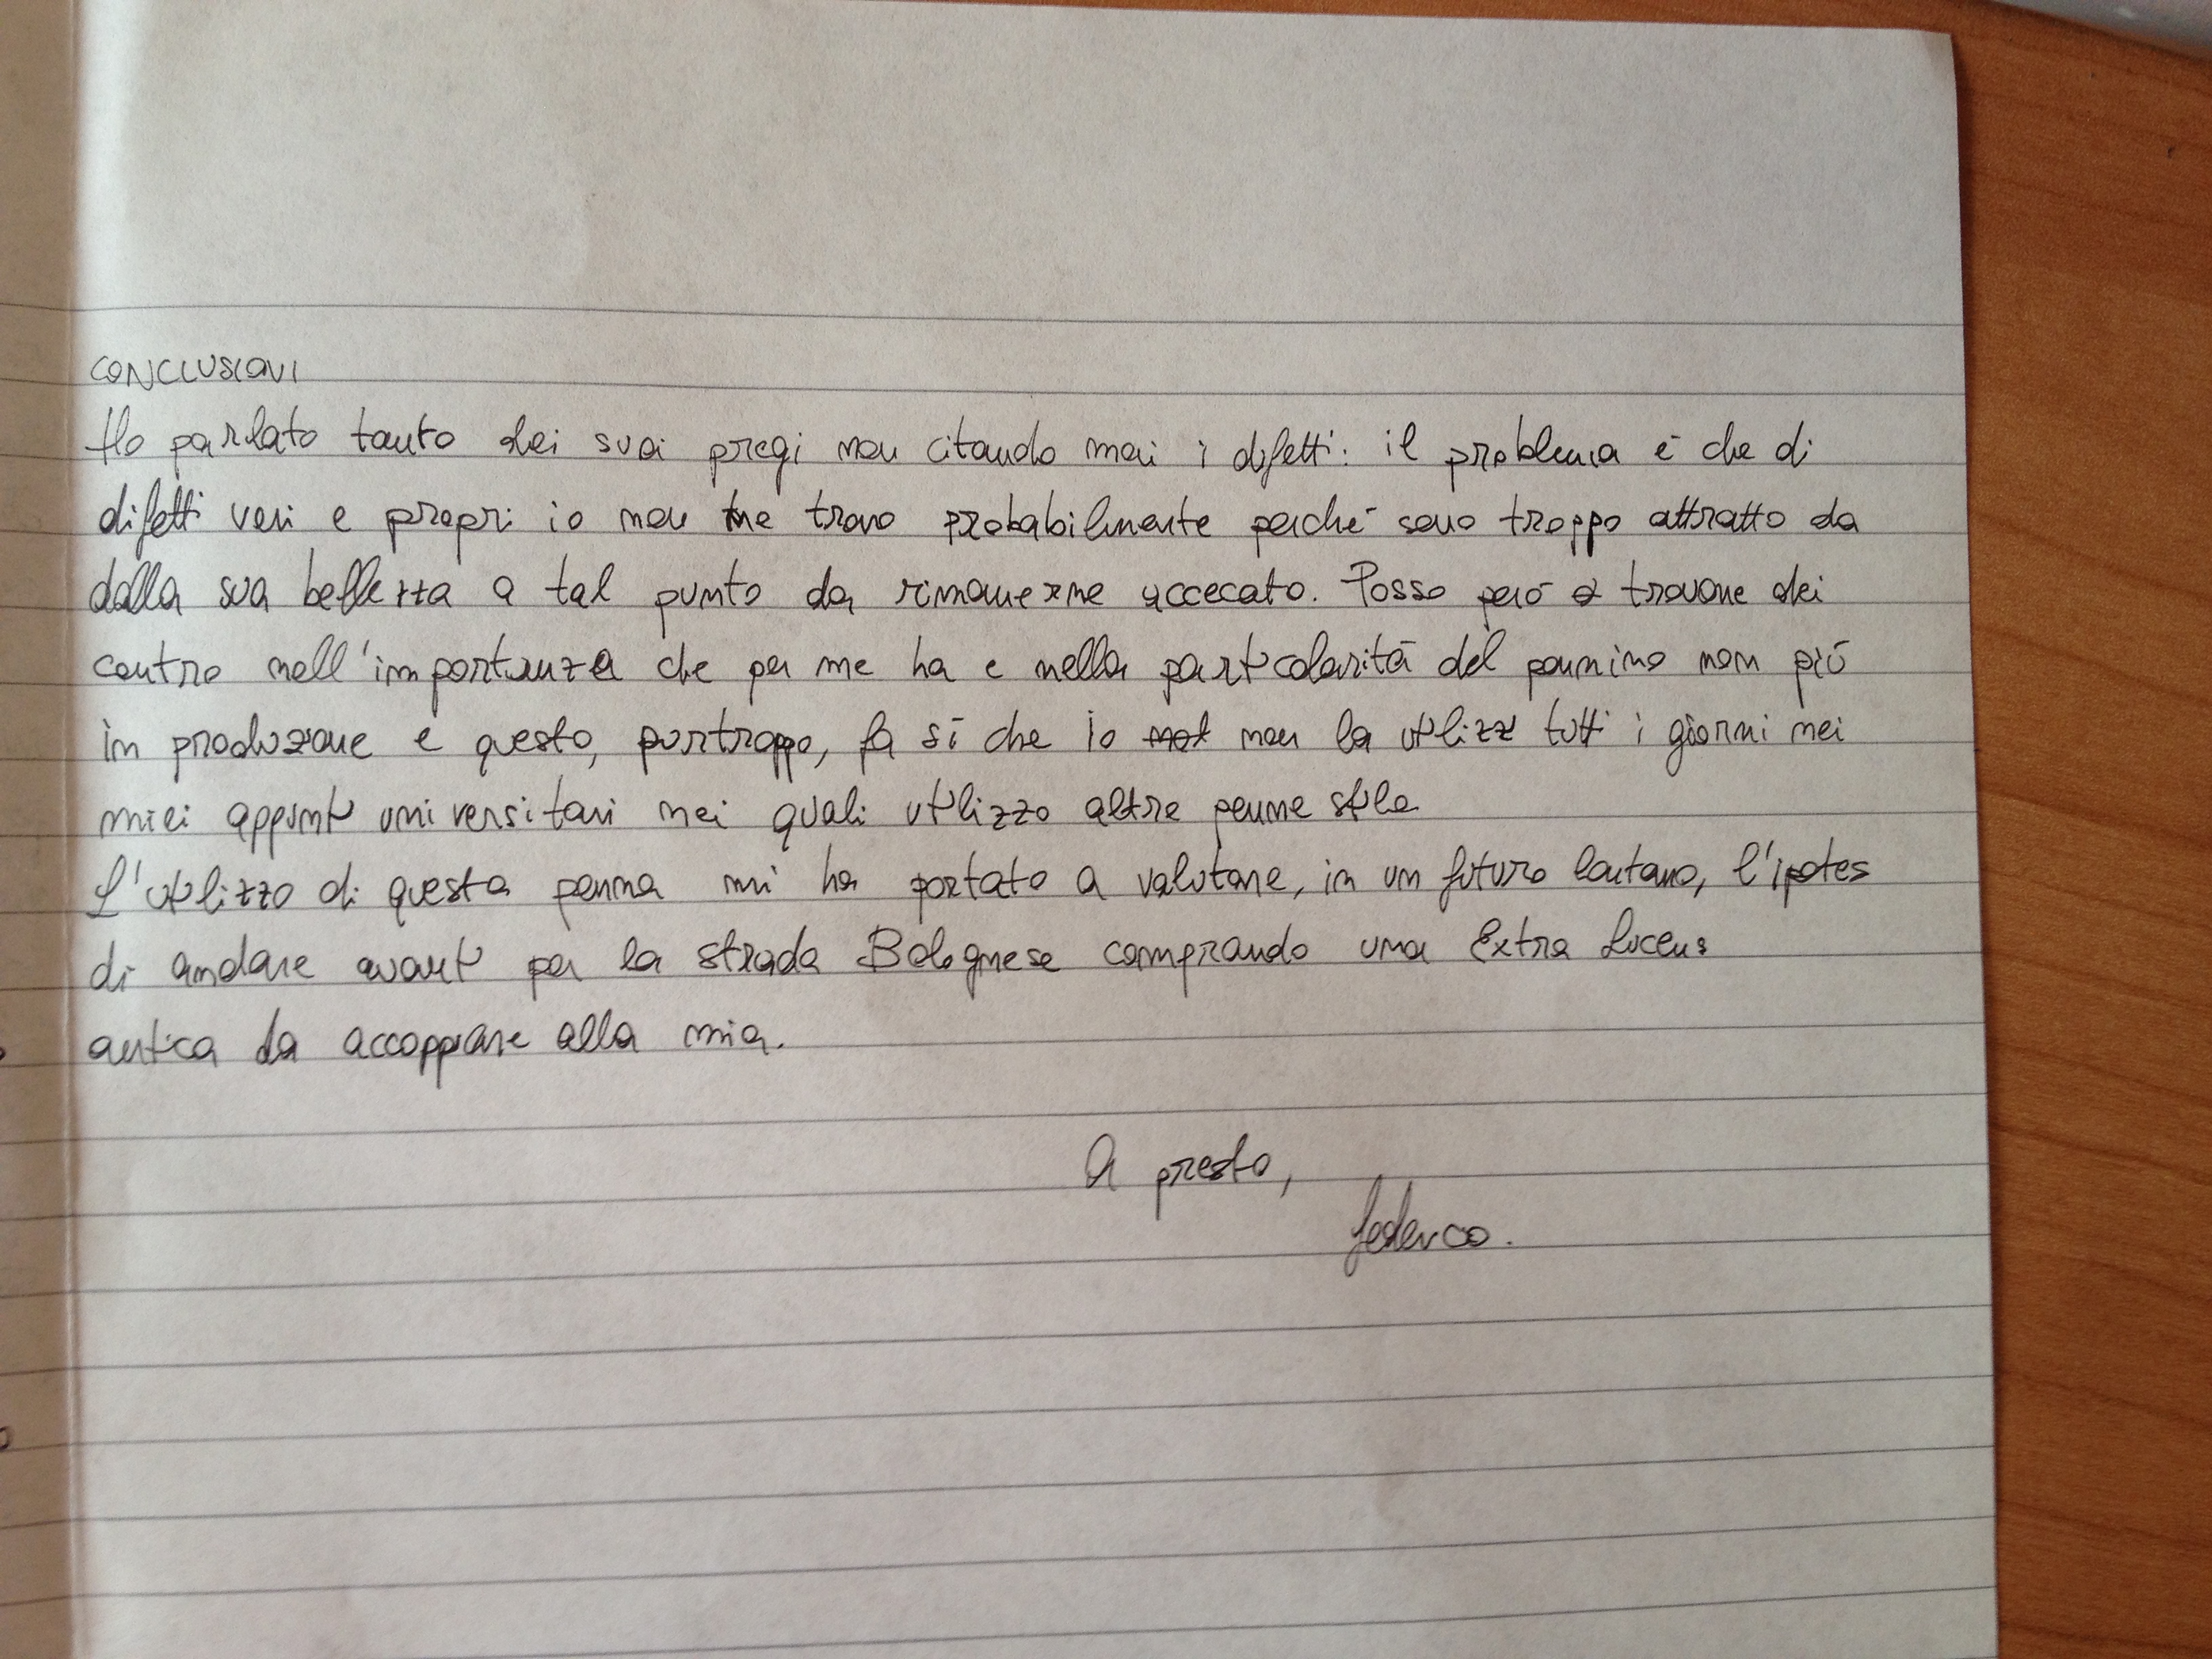 CONCLUSIONI
Ho parlato tanto dei suoi pregi non citando mai i difetti: il problema è che di
difetti veri e propri io non ne trovo probabilmente perché sono troppo attratto da
dalla sua bellezza a tal punto da rimanerne accecato. Posso però trovare dei
contro nell'importanza che per me ha e nella particolarità del pennino non più
in produzione e questo, purtroppo, fa sì che io non la utilizz tutti i giorni nei
miei appunti universitari nei quali utilizzo altre penne stilo
L'utilizzo di questa penna mi ha portato a valutare, in un futuro lontano, l'ipotes
di andare avanti per la strada Bolognese comprando una Extra Lucens
antica da accoppiare alla mia.
A presto,
Federico.